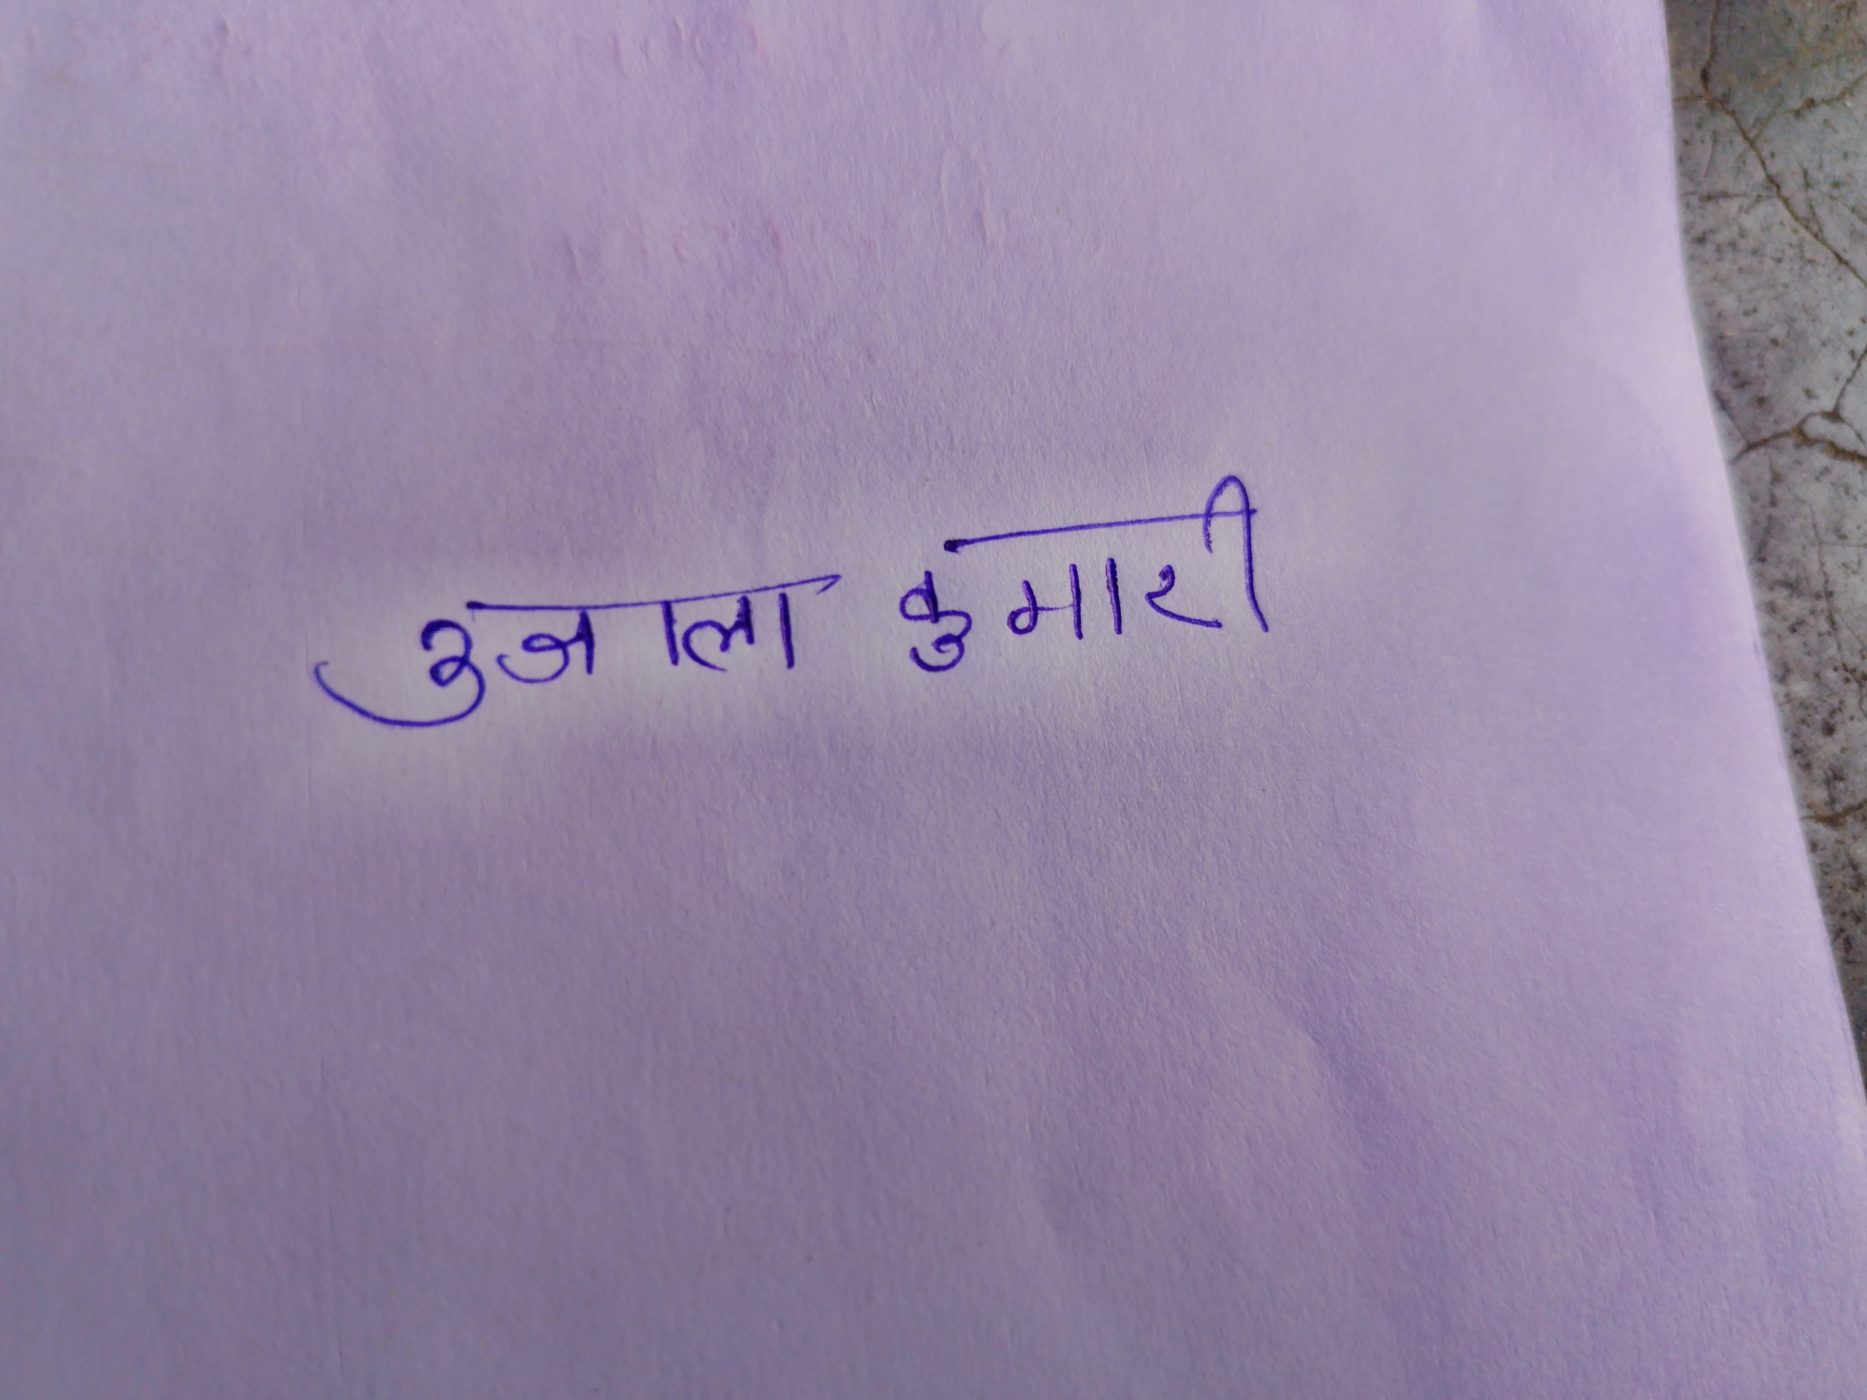 उजाला कुमारी